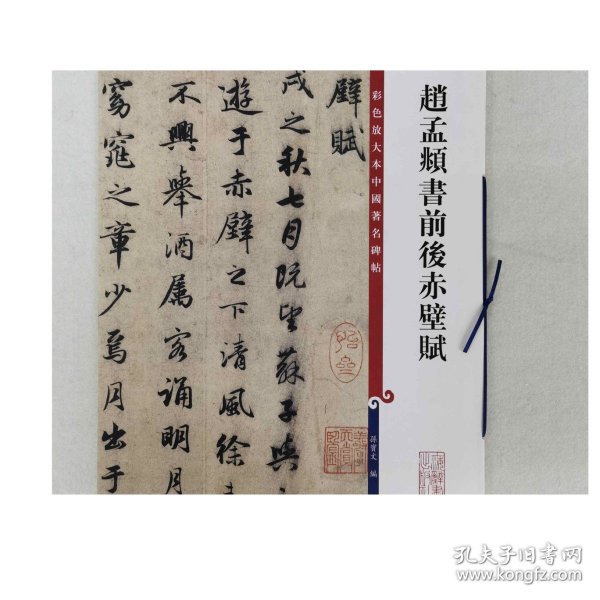 趙孟頫書前後赤壁賦
彩色放大本中國著名碑帖
孫寶文 編
壁賦
戌之秋七月既望蘇子與
遊于赤壁之下清風徐
不興舉酒屬客誦明月
窈窕之章少焉月出于
孔夫子旧书网
www.kongfz.com